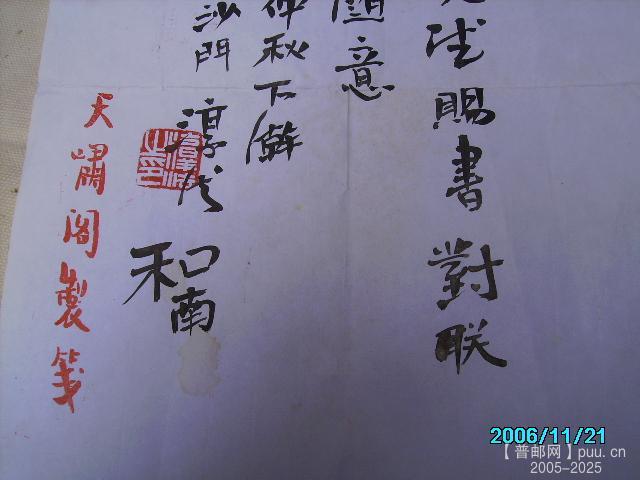 賜書對联
隨意
仲秋下澣
沙門淳
和南
天嘯阁製笺
2006/11/21
【普邮网】puu.cn
2005-2025